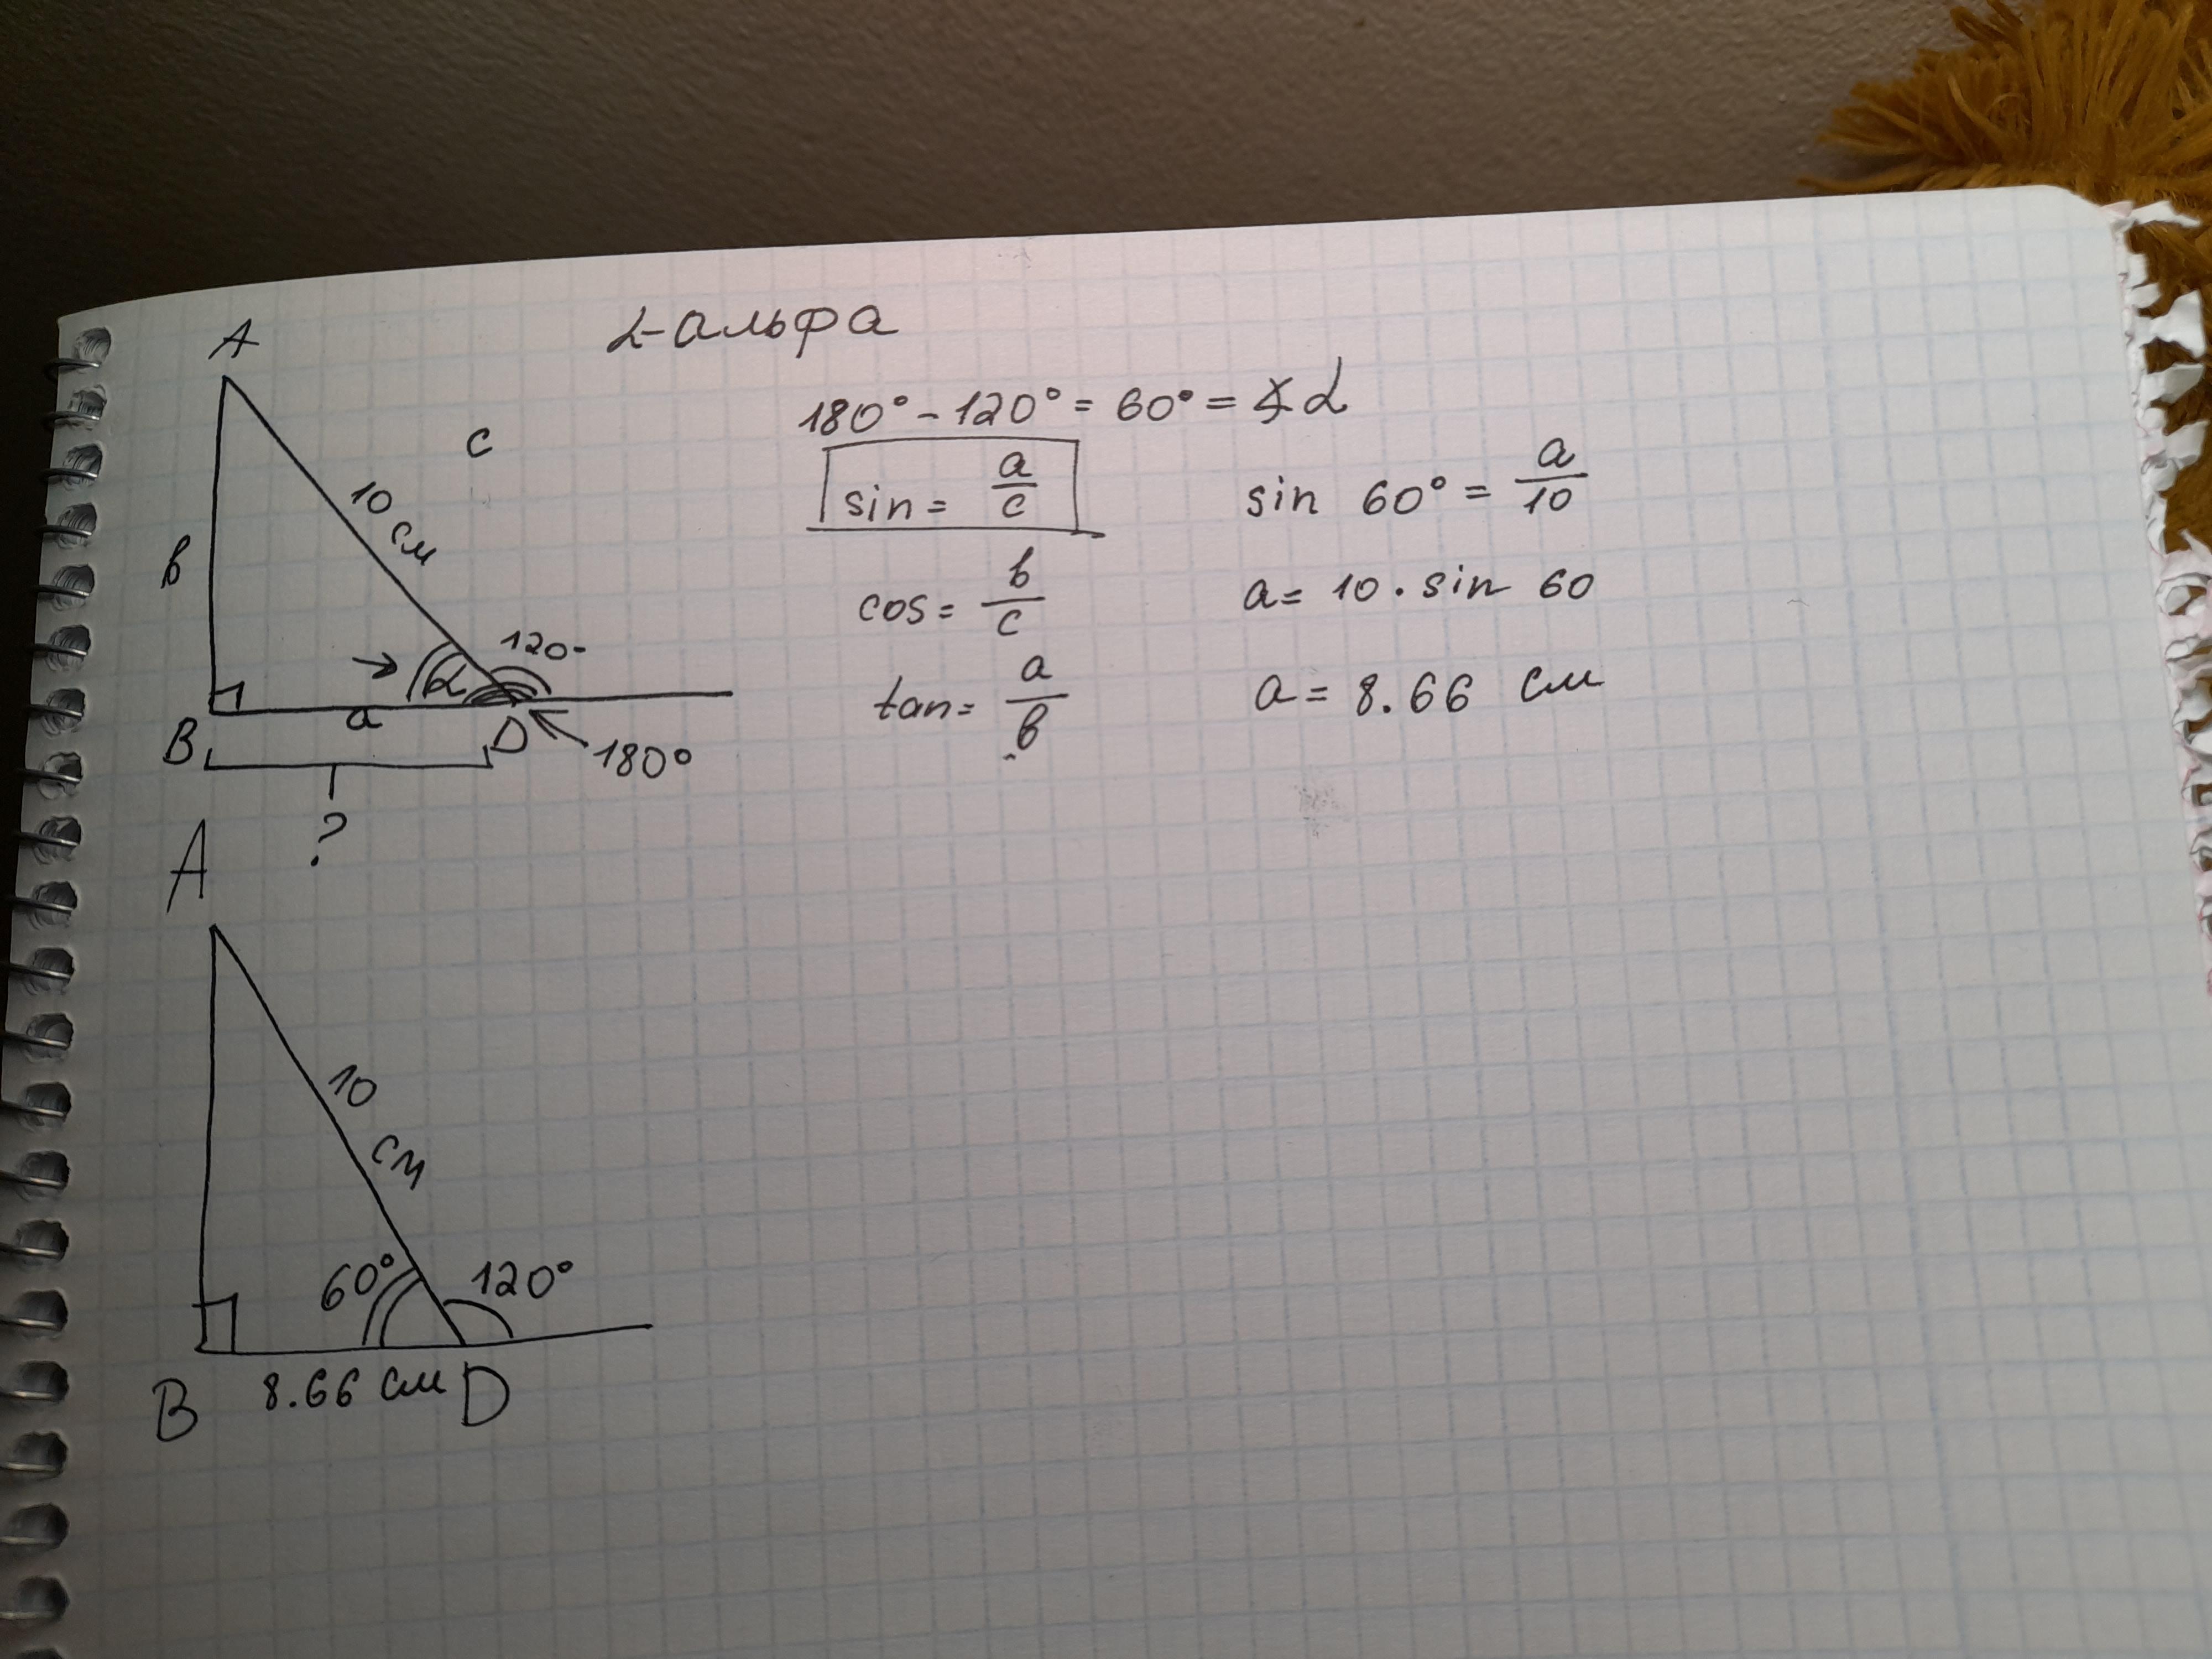 α-альфа
A
c
10 см
в
120°
α
a
B
D
180°
?
180° - 120° = 60° = ∢α
sin = a/c
cos = в/c
tan = a/в
sin 60° = a/10
a = 10 · sin 60
a = 8.66 см
A
10 см
60°
120°
B
8.66 см
D